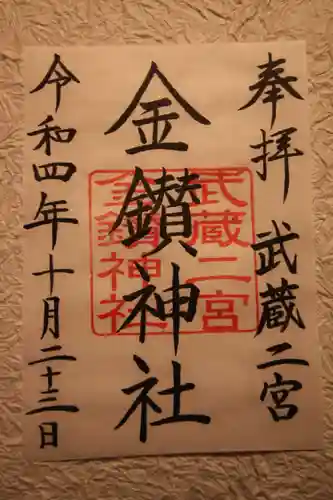 奉拝 武蔵二宮
金鑚神社
令和四年十月二十三日
武蔵二宮
金鑚神社